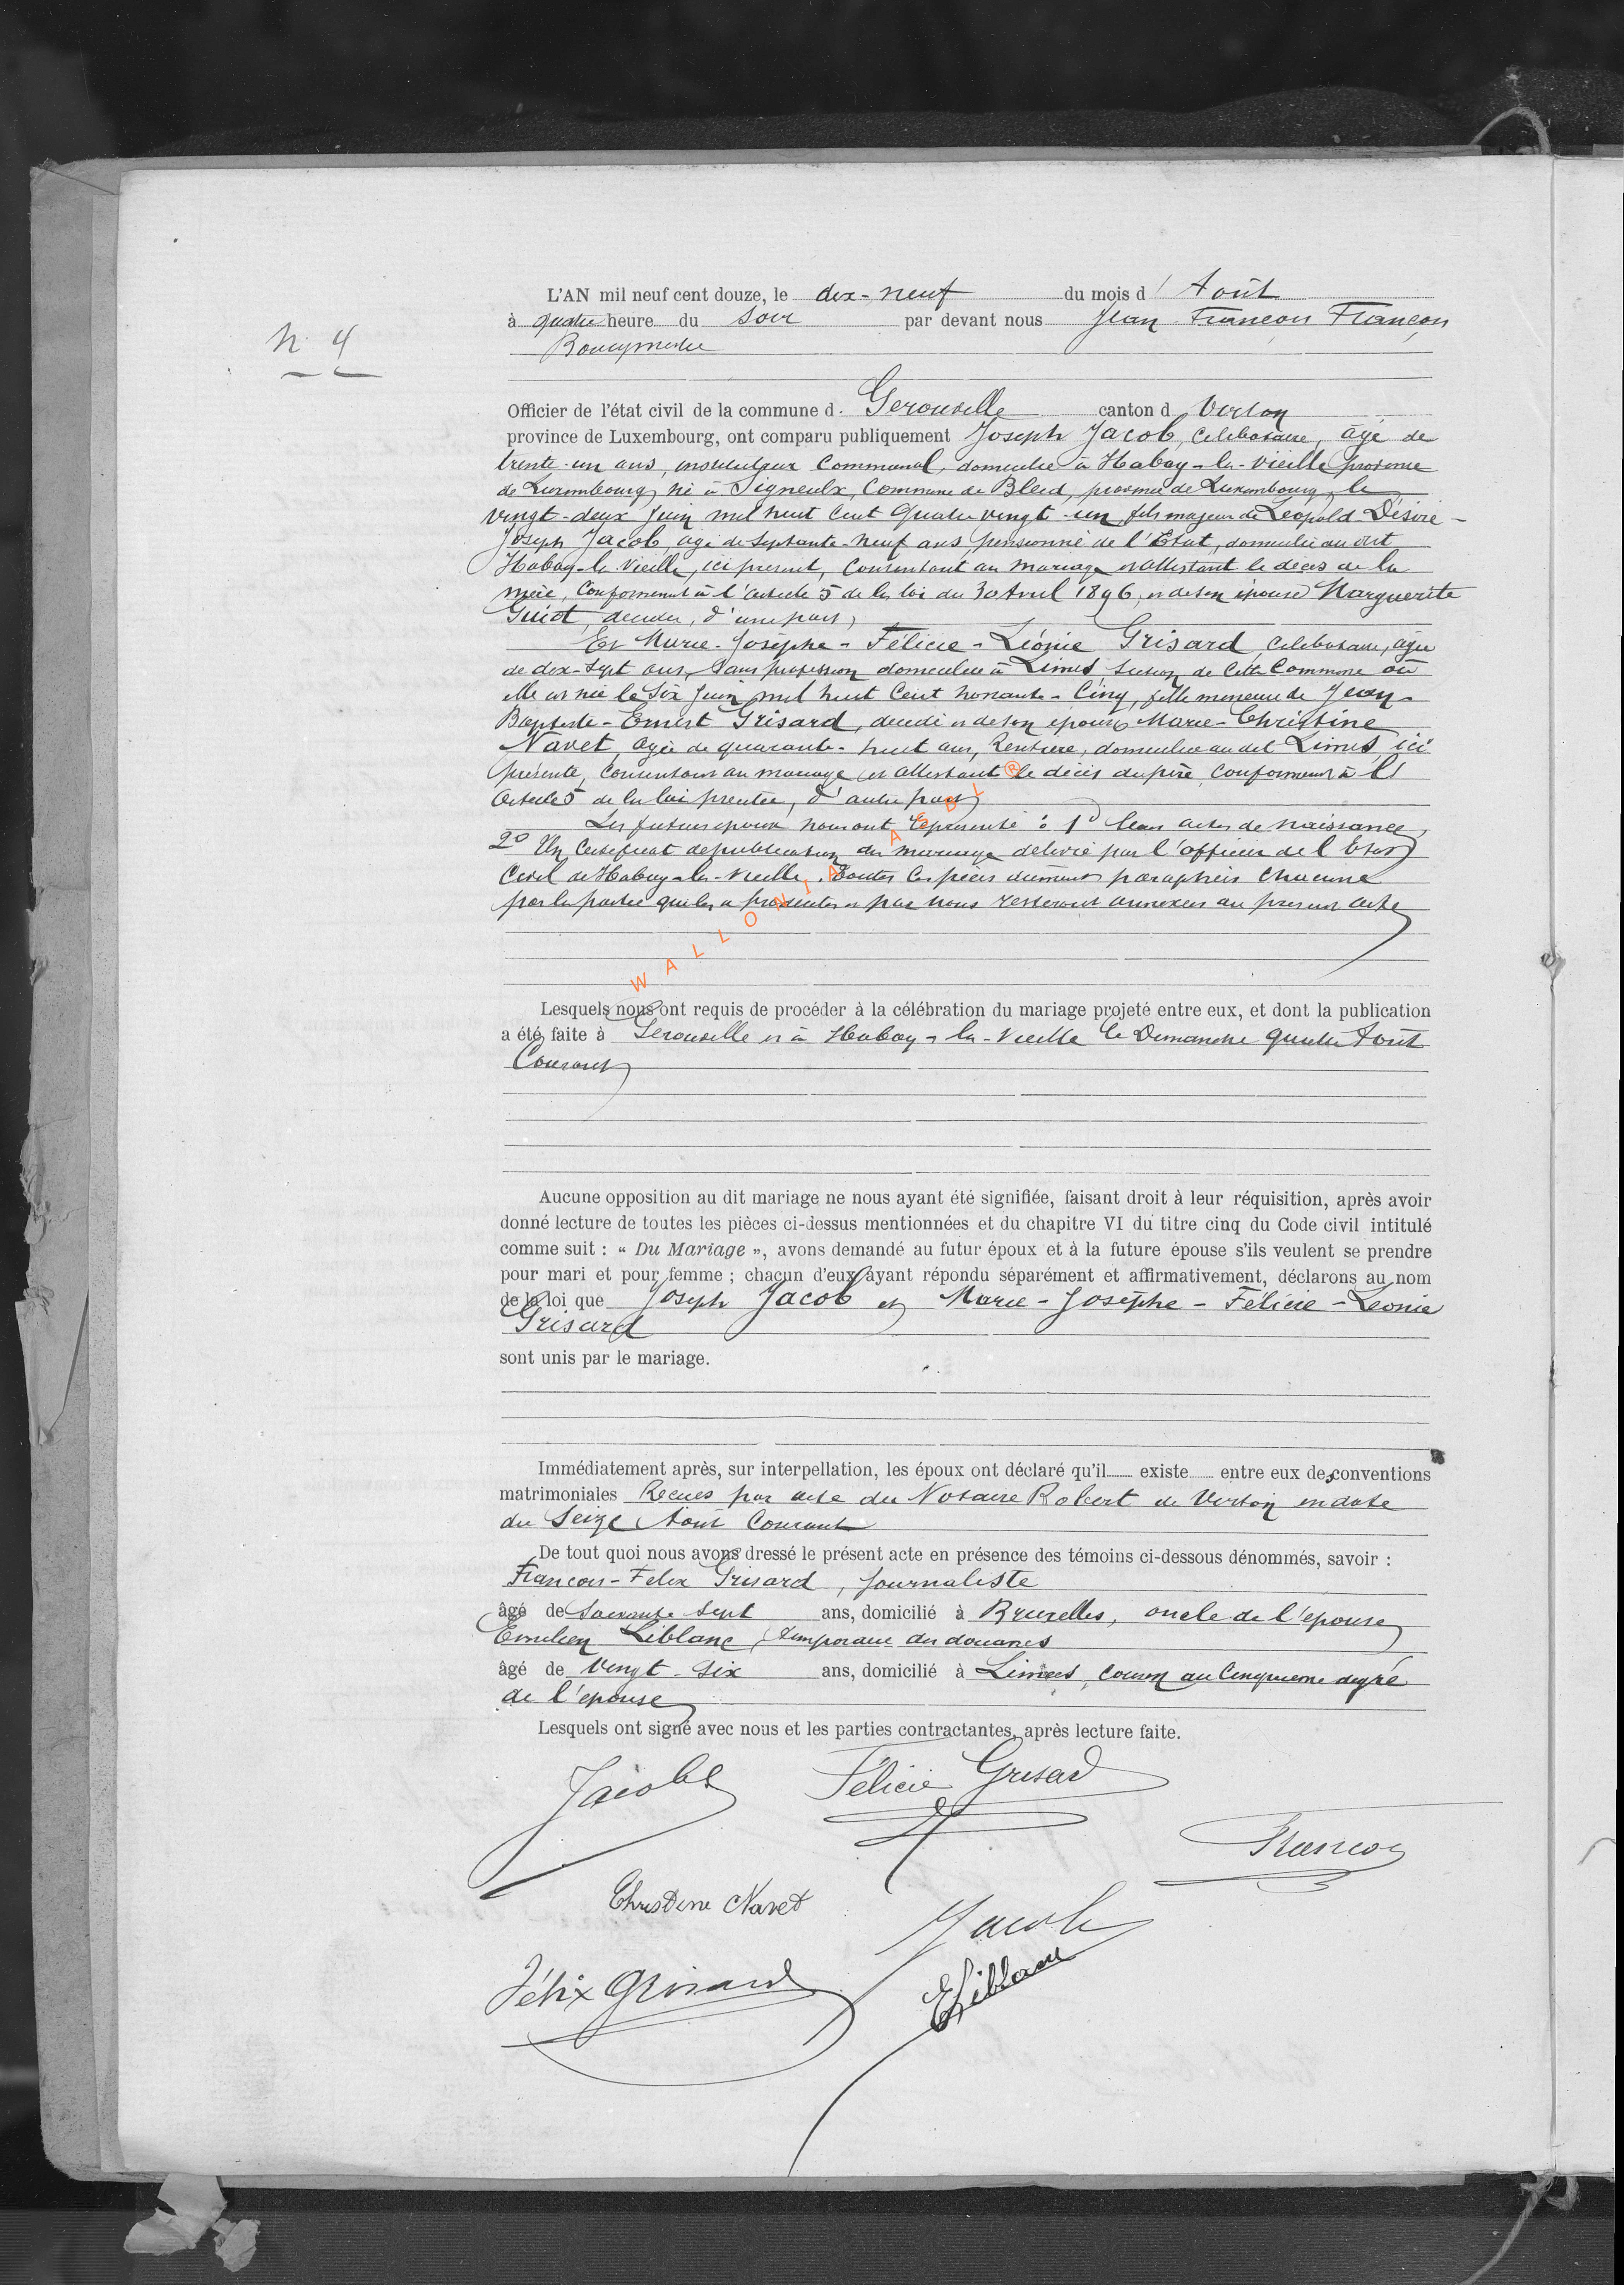 L'AN mil neuf cent douze, le dix-neuf du mois d' Août
à quatre heure du soir par devant nous Jean François François
N 4
Officier de l'état civil de la commune d. Gerouville canton d Virton
province de Luxembourg, ont comparu publiquement Joseph Jacob, celibataire, âgé de
trente-un ans, instituteur communal, domicilié à Habay-la-vieille province
de Luxembourg, né à Signeulx, Commune de Bleid, province de Luxembourg, le
vingt-deux Juin mil huit cent quatre vingt-un, fils majeur de Léopold-Désiré-
Joseph Jacob, agé de septante-neuf ans, pensionné de l'Etat, domicilié au dit
Habay-la Vieille, ici présent, consentant au mariage et attestant le décès de la
mère, conformément à l'article 5 de la loi du 30 Avril 1896, et de son épouse Marguerite
Guiot, décédée, d'une part,
Et Marie-Josèphe-Félicie-Léonie Grisard, celibataire, agée
de dix-sept ans, sans profession domiciliée à Limes, section de cette Commune où
elle est née le six Juin mil huit cent nonante-cinq, fille mineure de Jean-
Baptiste-Ernest Grisard, décédé et de son épouse Marie-Christine
Navet, agée de quarante-huit ans, Rentière, domiciliée au dit Limes, ici
présente, consentant au mariage et attestant le décès du père, conformément à l'
article 5 de la loi précitée, d'autre part
Les futurs époux nous ont représenté : 1° leurs actes de naissance,
2° Un certificat de publication du mariage délivré par l'officier de l'Etat
Civil de Habay-la-Vieille. Toutes les pièces dument paraphées chacune
par la partie qui les a produites et par nous resteront annexées au présent acte
WALLONIA ASBL ®
Lesquels nous ont requis de procéder à la célébration du mariage projeté entre eux, et dont la publication
a été faite à Gerouville et à Habay-la-Vieille le Dimanche quatre Août
Courant
Aucune opposition au dit mariage ne nous ayant été signifiée, faisant droit à leur réquisition, après avoir
donné lecture de toutes les pièces ci-dessus mentionnées et du chapitre VI du titre cinq du Code civil intitulé
comme suit : « Du Mariage », avons demandé au futur époux et à la future épouse s'ils veulent se prendre
pour mari et pour femme ; chacun d'eux ayant répondu séparément et affirmativement, déclarons au nom
de la loi que Joseph Jacob et Marie-Josèphe-Félicie-Léonie
Grisard
sont unis par le mariage.
Immédiatement après, sur interpellation, les époux ont déclaré qu'il existe entre eux des conventions
matrimoniales Recues par acte du Notaire Robert de Virton en date
du Seize Aout Courant
De tout quoi nous avons dressé le présent acte en présence des témoins ci-dessous dénommés, savoir :
François-Felix Grisard, Journaliste
âgé de soixante sept ans, domicilié à Bruxelles, oncle de l'epouse
Emilien Liblanc, temporaire des douanes
âgé de vingt-six ans, domicilié à Limes, cousin au cinquieme degré
de l'epouse
Lesquels ont signé avec nous et les parties contractantes, après lecture faite.
Jacob
Félicie Grisard
François
Christine Navet
Jacob
Félix Grisard
E Liblanc